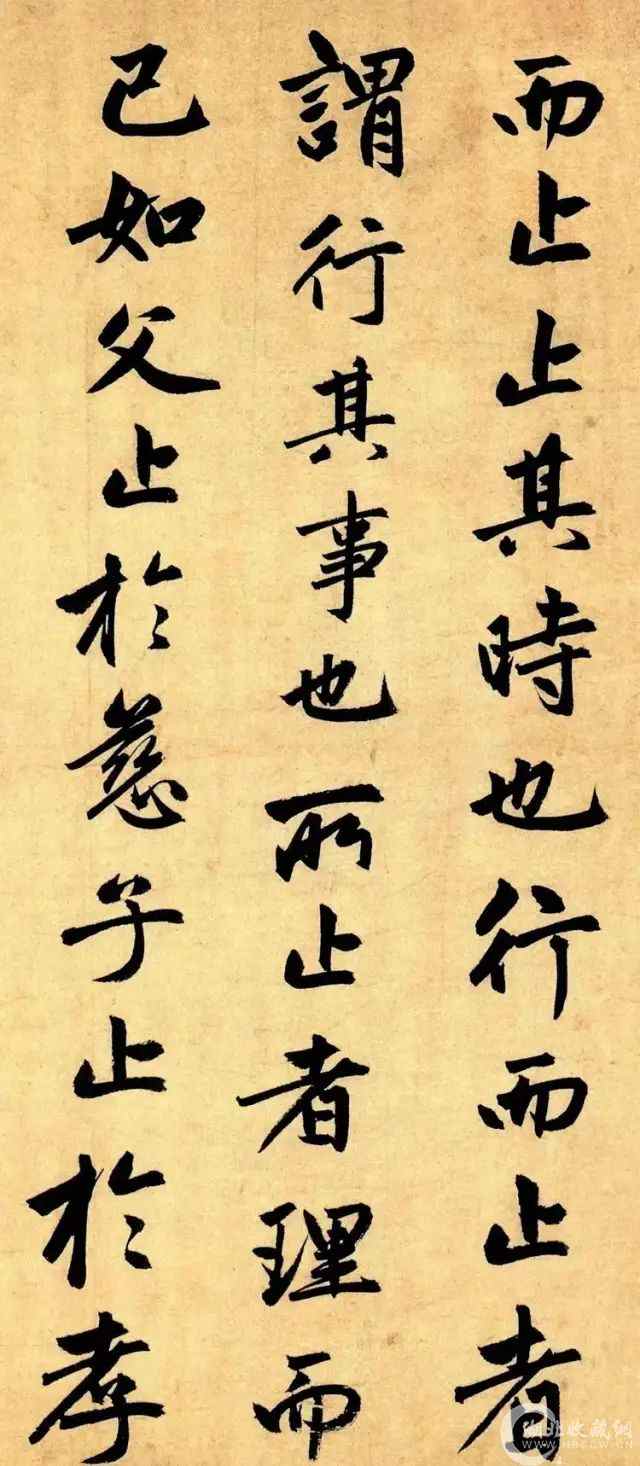 而止止其時也行而止者
謂行其事也所止者理而
已如父止於慈子止於孝
湖北收藏网
WWW.HBSCW.CN